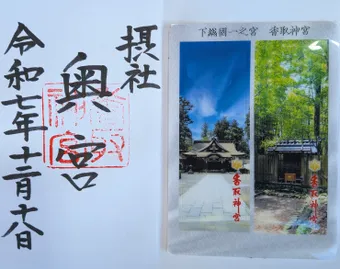 摂社
奥宮
令和七年十二月十八日
下総國一之宮　香取神宮
香取神宮
香取神宮